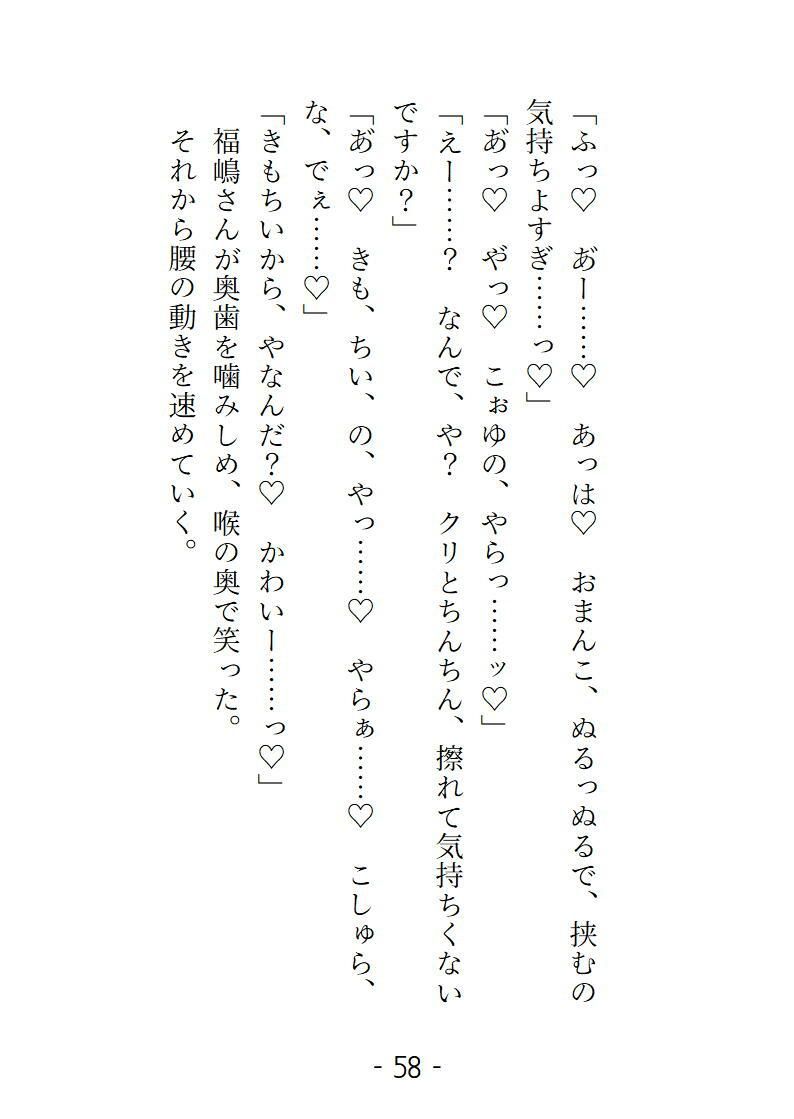 「ふっ♡　あ゙ー……♡　あっは♡　おまんこ、ぬるっぬるで、挟むの
気持ちよすぎ……っ♡」
「あ゙っ♡　や゙っ♡　こぉゆの、やらっ……ッ♡」
「えー……？　なんで、や？　クリとちんちん、擦れて気持ちくない
ですか？」
「あ゙っ♡　きも、ちい、の、やっ……♡　やらぁ……♡　こしゅら、
な、でぇ……♡」
「きもちいから、やなんだ？♡　かわいー……っ♡」
　福嶋さんが奥歯を噛みしめ、喉の奥で笑った。
　それから腰の動きを速めていく。
- 58 -